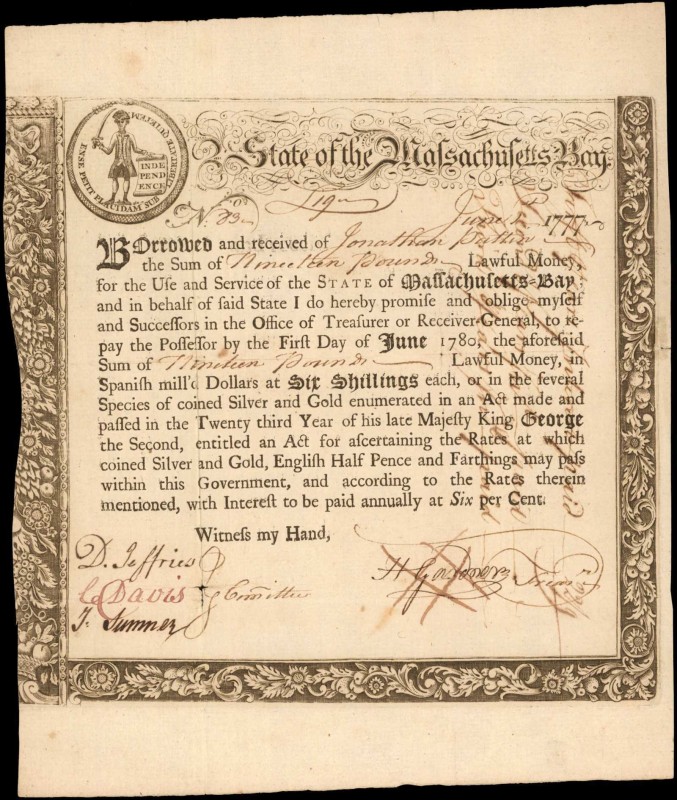 ENSE PETIT PLACIDAM SUB LIBERTATE QUIETEM
INDE
PEND
ENCE
State of the Maſſachuſetts Bay.
£ 19
No. 1777
BOrrowed and received of Jonathan
the Sum of Nineteen Pounds Lawful Money,
for the Uſe and Service of the STATE of Maſſachuſetts-Bay
and in behalf of ſaid State I do hereby promiſe and oblige myſelf
and Succeſſors in the Office of Treaſurer or Receiver-General, to re-
pay the Poſſeſſor by the Firſt Day of June 1780, the aforeſaid
Sum of Nineteen Pounds Lawful Money, in
Spaniſh mill'd Dollars at Six Shillings each, or in the ſeveral
Species of coined Silver and Gold enumerated in an Act made and
paſſed in the Twenty third Year of his late Majeſty King George
the Second, entitled an Act for aſcertaining the Rates at which
coined Silver and Gold, Engliſh Half Pence and Farthings may paſs
within this Government, and according to the Rates therein
mentioned, with Intereſt to be paid annually at Six per Cent.
Witneſs my Hand,
D. Jeffries
C Davis Committee
H Gardner Treasr
J. Sumner